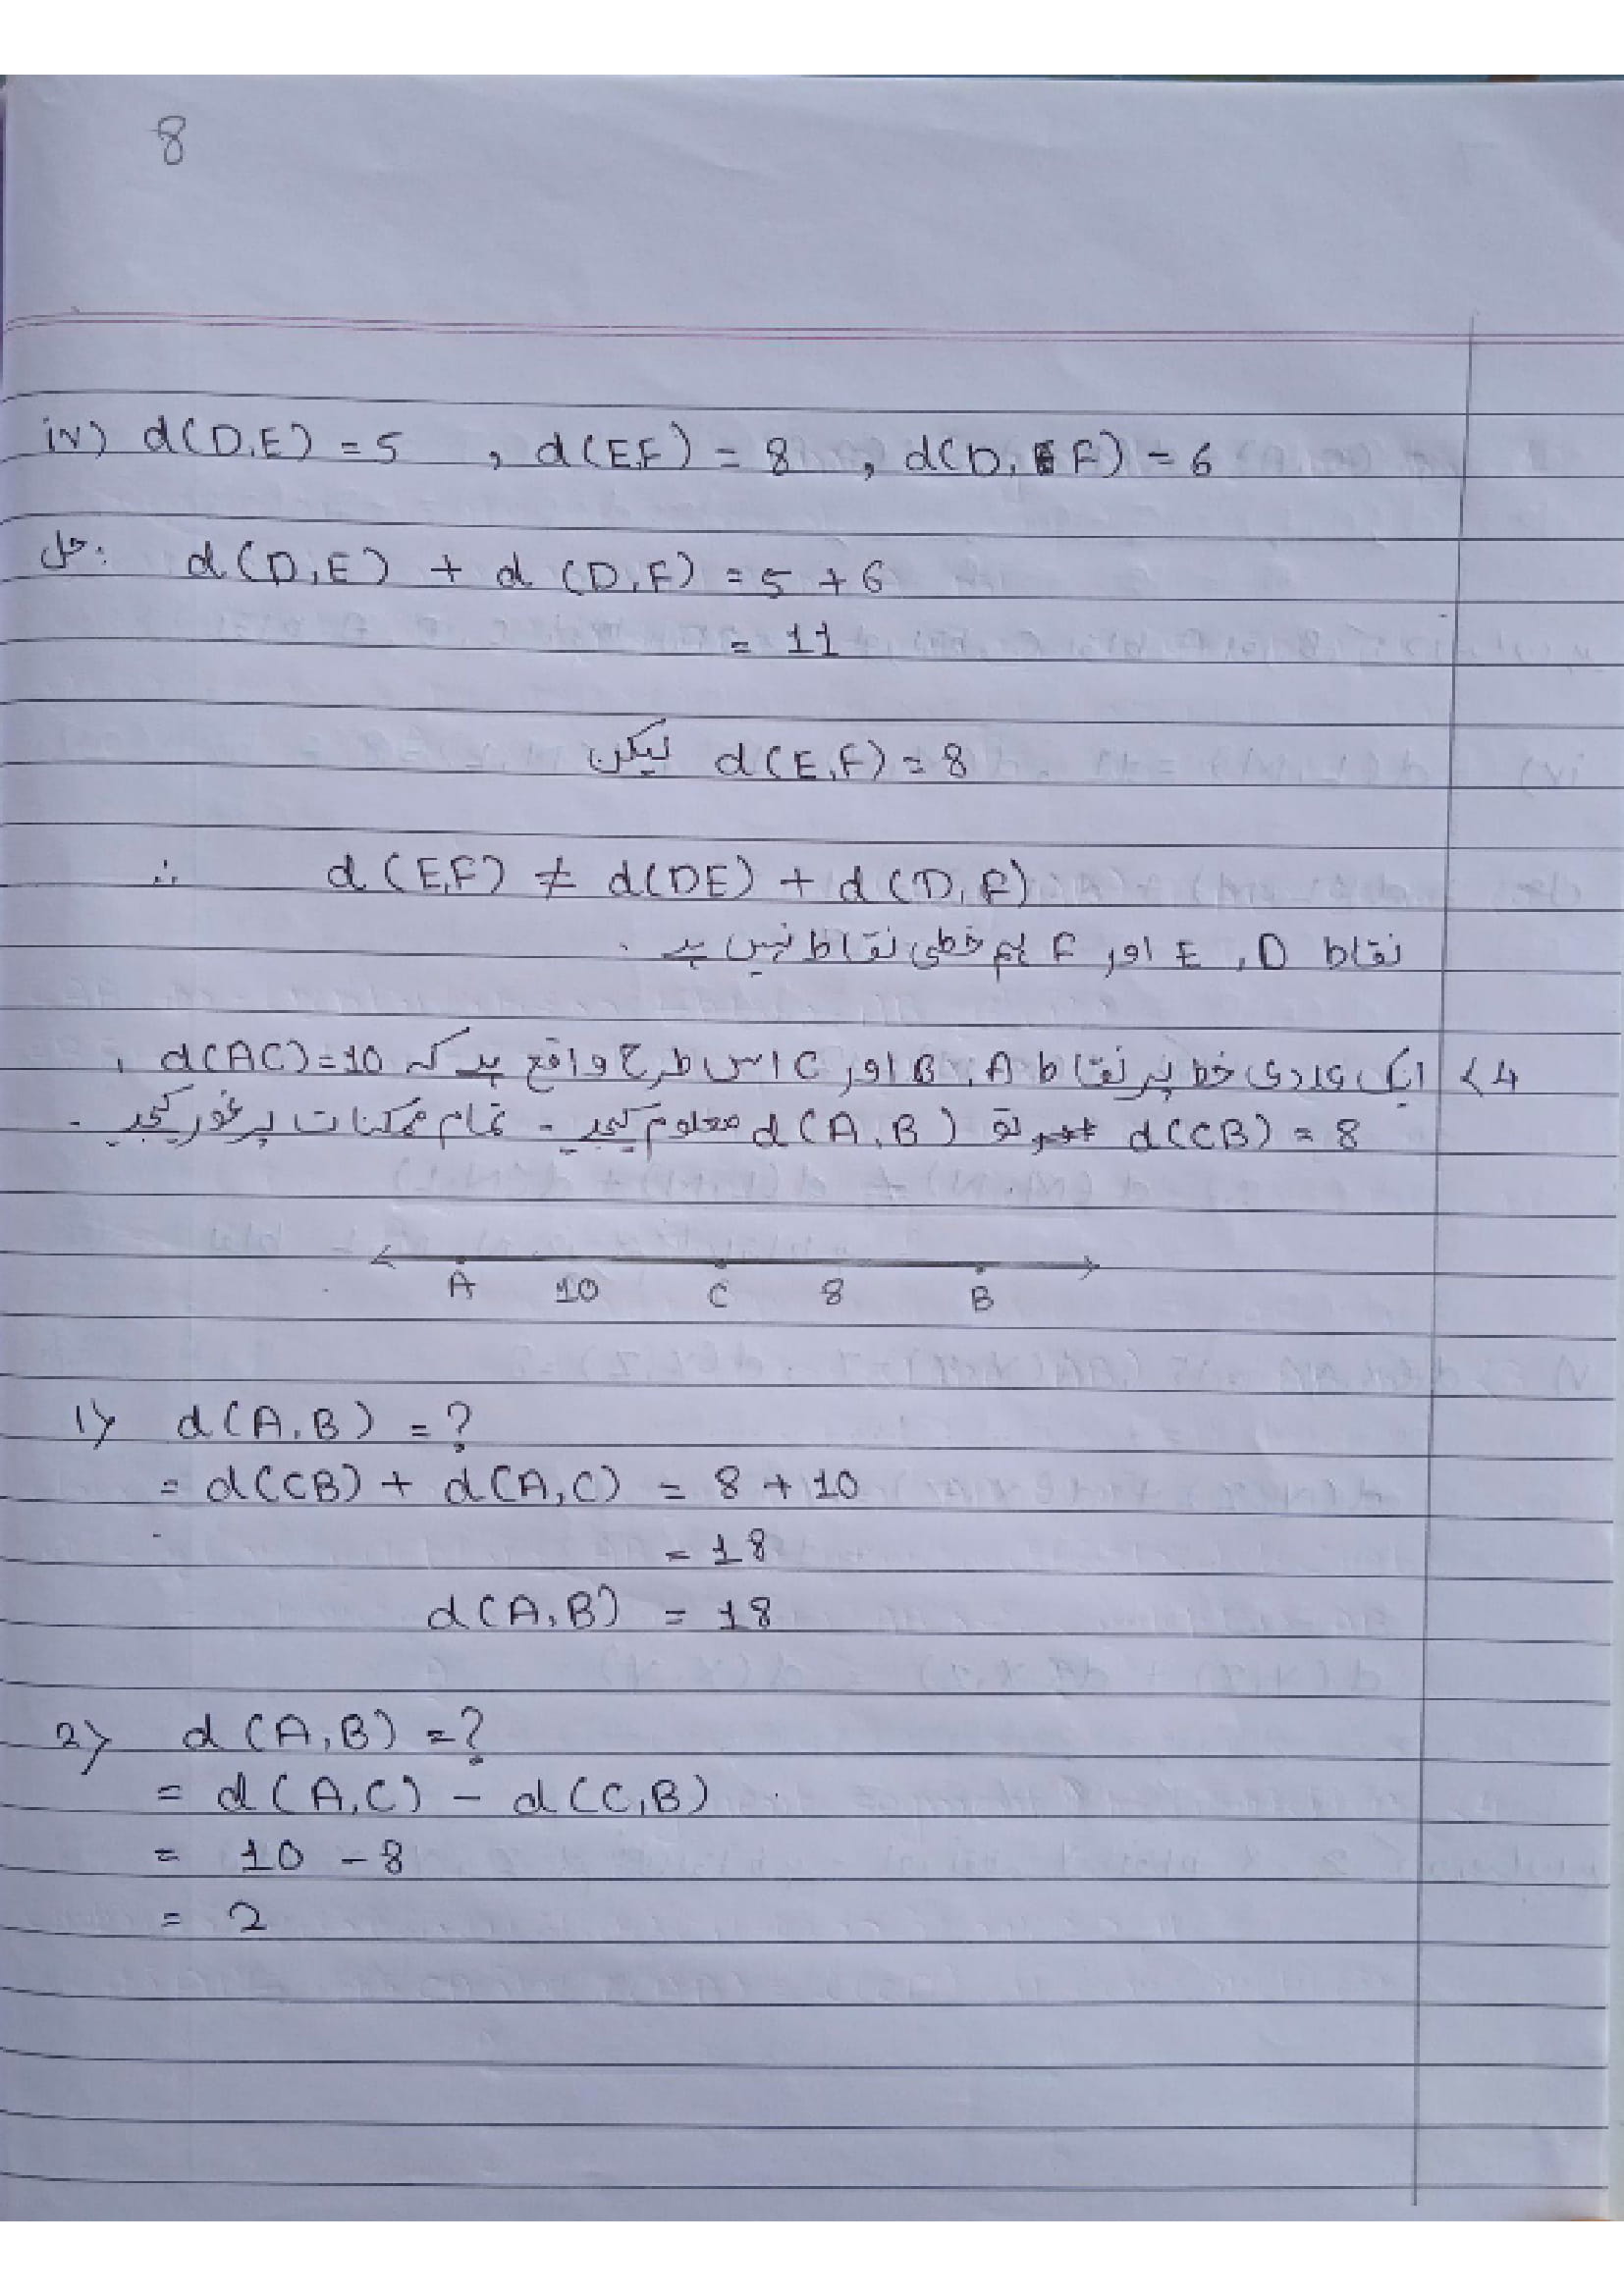 8
iv) d(D,E) = 5 , d(E,F) = 8 , d(D, F) = 6
حل: d(D,E) + d(D,F) = 5 + 6
= 11
لیکن d(E,F) = 8
∴ d(E,F) ≠ d(DE) + d(D,F)
نقاط E , D اور F ہم خطی نقاط نہیں ہے .
4> ایک عددی خط پر نقاط B , A اور C اس طرح واقع ہے کہ d(AC)=10 ,
d(CB) = 8 تو d(A,B) معلوم کیجیے - تمام ممکنات پر غور کیجیے -
A 10 C 8 B
1> d(A,B) = ?
= d(CB) + d(A,C) = 8 + 10
= 18
d(A,B) = 18
2> d(A,B) = ?
= d(A,C) - d(C,B)
= 10 - 8
= 2